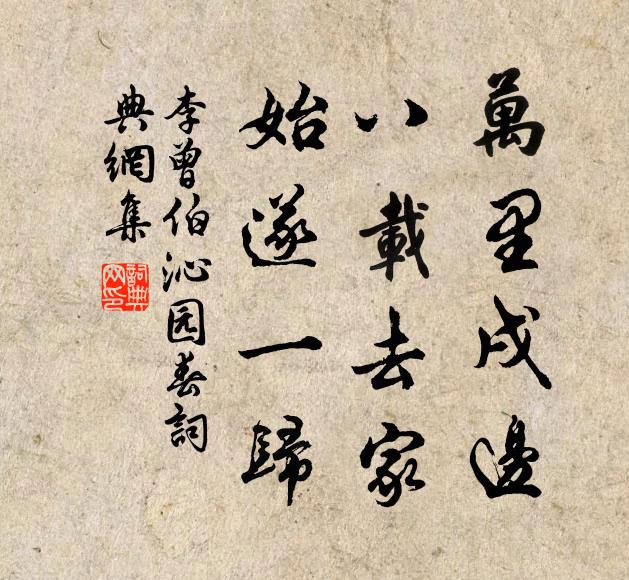 萬里戍邊
八載去家
始遂一歸
李曾伯沁园春詞
典網集
詞典網印